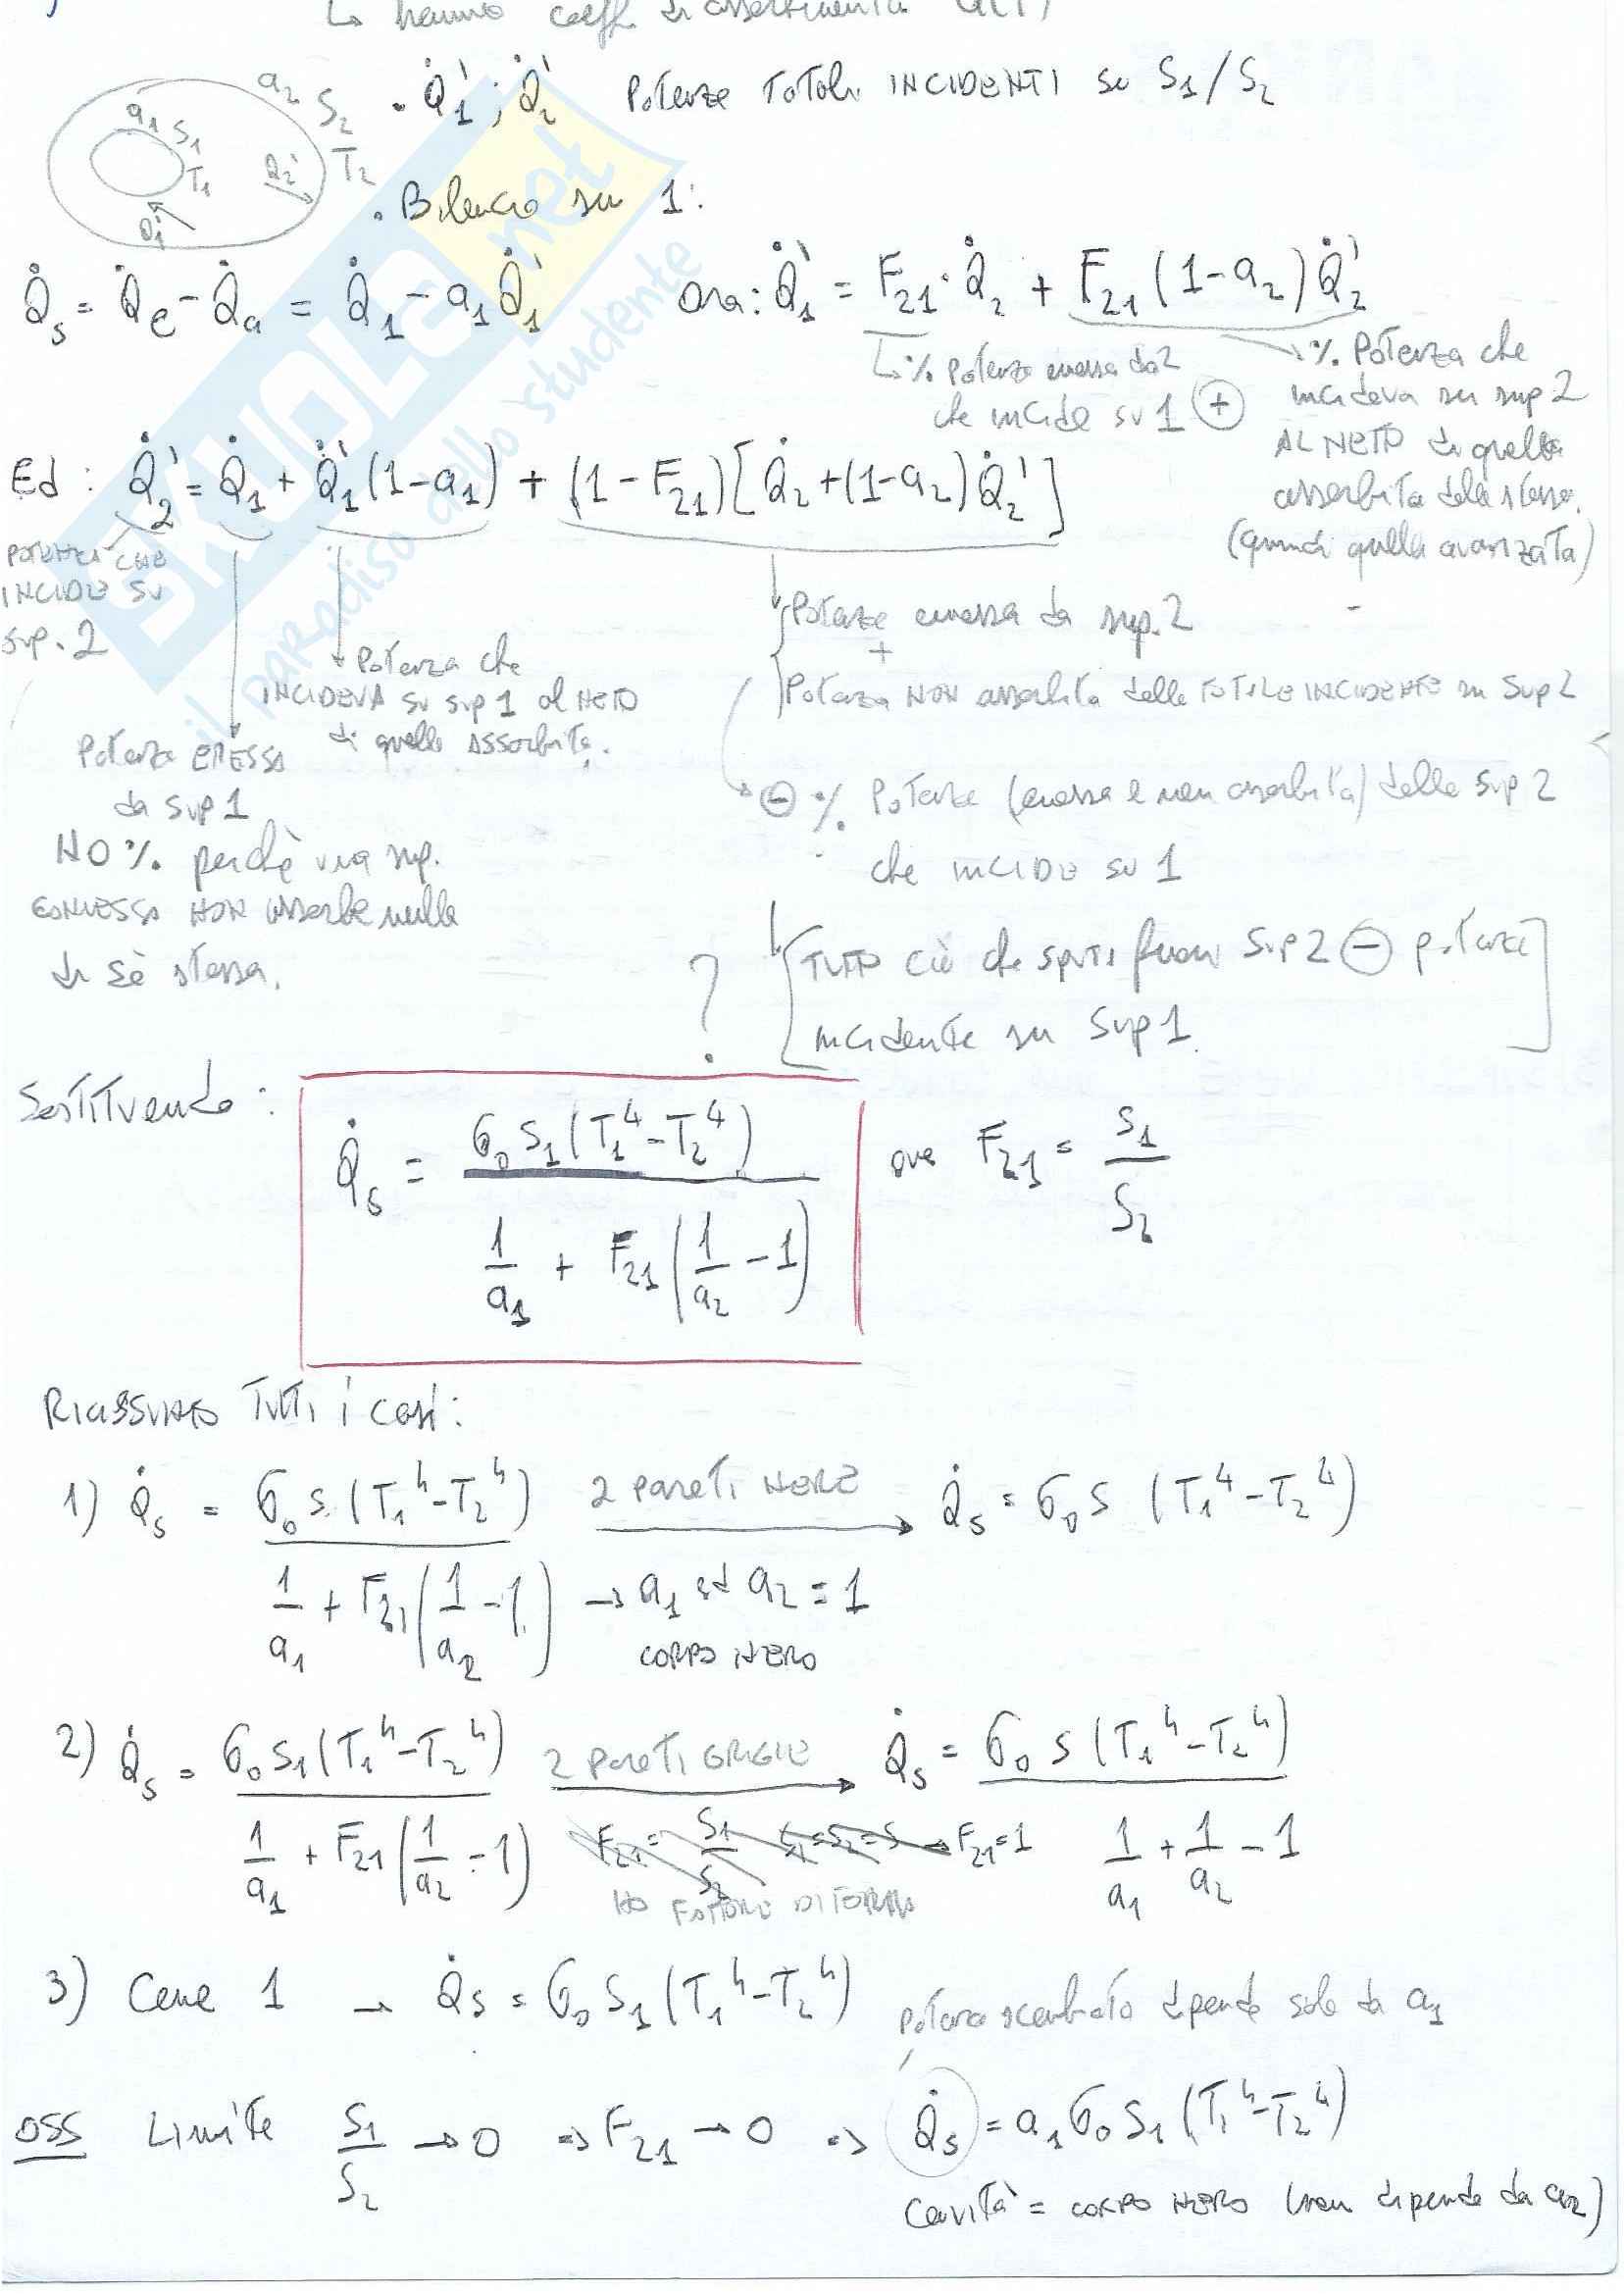 ↳ hanno coeff. di assorbimento a(T)
a₂ S₂ T₂
a₁ S₁ T₁
Q̇₂' Q̇₁'
• Q̇₁' ; Q̇₂' Potenze Totali INCIDENTI su S₁/S₂
• Bilancio su 1:
Q̇s = Q̇e - Q̇a = Q̇₁ - a₁Q̇₁' Ora: Q̇₁' = F₂₁·Q̇₂ + F₂₁(1-a₂)Q̇₂'
↳% Potenza emessa da 2
che incide su 1 ⊕
% Potenza che
incideva su sup 2
AL NETTO di quella
assorbita dalla stessa.
(quindi quella avanzata)
Ed : Q̇₂' = Q̇₁ + Q̇₁'(1-a₁) + (1-F₂₁)[Q̇₂+(1-a₂)Q̇₂']
POTENZA CHE
INCIDE SU
SUP. 2
Potenza EMESSA
da SUP 1
NO % perchè una sup.
CONVESSA NON assorbe nulla
di sè stessa.
Potenza che
INCIDEVA su sup 1 al NETTO
di quella ASSORBITA.
Potenza emessa da sup. 2
+
Potenza NON assorbita della TOTALE INCIDENTE su SUP 2
⊖ % Potenza (emessa e non assorbita) della SUP 2
che INCIDE su 1
?
[TUTTO ciò che sputa fuori SUP 2 ⊖ potenza
incidente su SUP 1.]
Sostituendo :
Q̇s = σ₀S₁(T₁⁴-T₂⁴) / (1/a₁ + F₂₁(1/a₂ - 1)) ove F₂₁ = S₁/S₂
RIASSUMO TUTTI i casi:
1) Q̇s = σ₀S(T₁⁴-T₂⁴) / (1/a₁ + F₂₁(1/a₂ - 1)) 2 pareti NERE → Q̇s = σ₀S (T₁⁴-T₂⁴)
→ a₁ ed a₂ = 1
CORPO NERO
2) Q̇s = σ₀S₁(T₁⁴-T₂⁴) / (1/a₁ + F₂₁(1/a₂ - 1)) 2 pareti GRIGIE → Q̇s = σ₀S(T₁⁴-T₂⁴) / (1/a₁ + 1/a₂ - 1)
F₂₁ = S₁/S₂ S₁=S₂=S → F₂₁=1
NO FATTORE DI FORMA
3) Come 1 → Q̇s = σ₀S₁(T₁⁴-T₂⁴)
potenza scambiata dipende solo da a₁
OSS Limite S₁/S₂ → 0 ⇒ F₂₁ → 0 ⇒ Q̇s = a₁σ₀S₁(T₁⁴-T₂⁴)
Cavità = CORPO NERO (non dipende da a₂)
SKUOLA.net
il paradiso dello studente